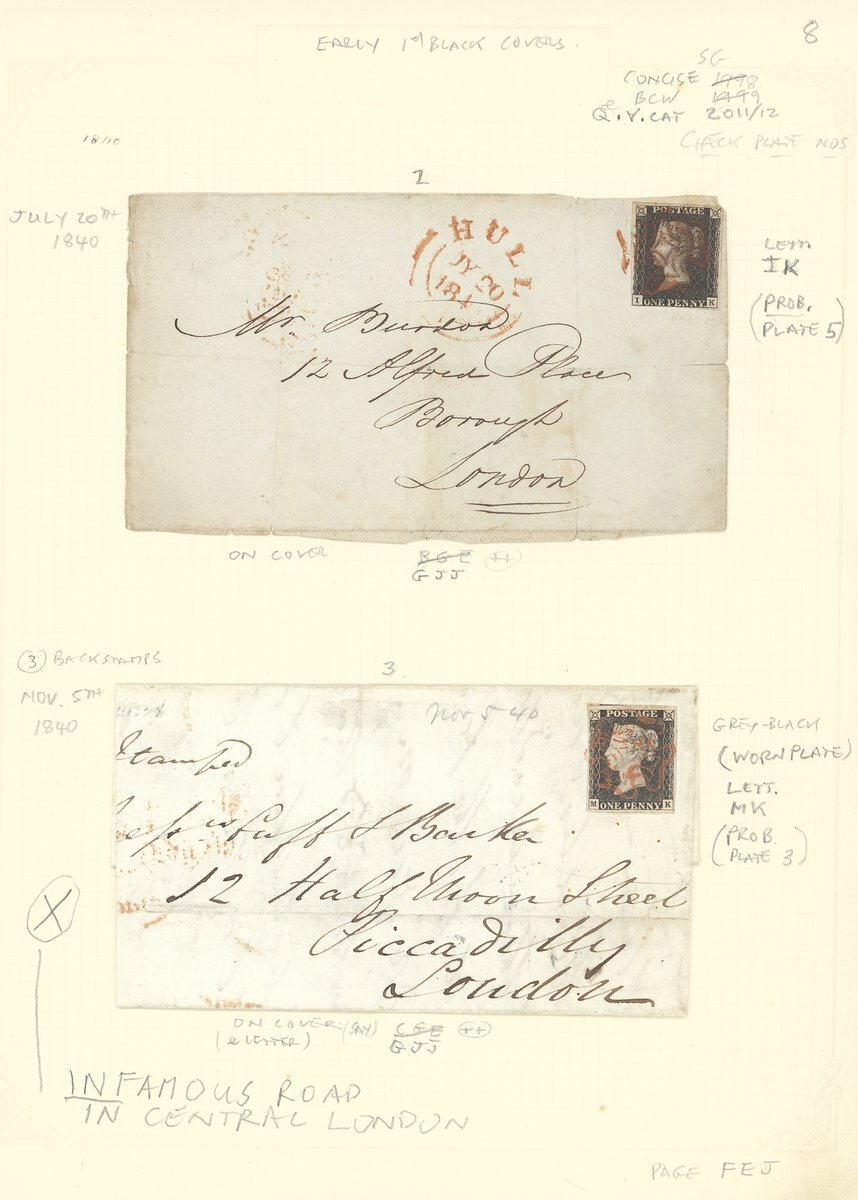 EARLY 1d BLACK COVERS.
8
SG
CONCISE 1998
BCW 1999
Q.V. CAT 2011/12
CHECK PLATE NOS
1840
1
JULY 20TH
1840
HULL
JY 20
184
POSTAGE
I ONE PENNY K
LETT.
IK
(PROB.
PLATE 5)
Mr. Burdon
12 Alfred Place
Borough
London
ON COVER
BGE ++
GJJ
3 BACKSTAMPS
3.
NOV. 5TH
1840
Nov 5 40
POSTAGE
M ONE PENNY K
GREY-BLACK
(WORN PLATE)
LETT.
MK
(PROB.
PLATE 3)
Stamped
Cuff & Barker
12 Half Moon Street
Piccadilly
London
ON COVER CGE ++
(& LETTER) GJJ
X
INFAMOUS ROAD
IN CENTRAL LONDON
PAGE FEJ